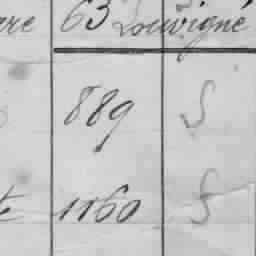 are 63 Louvigné
889 S
te 1160 S